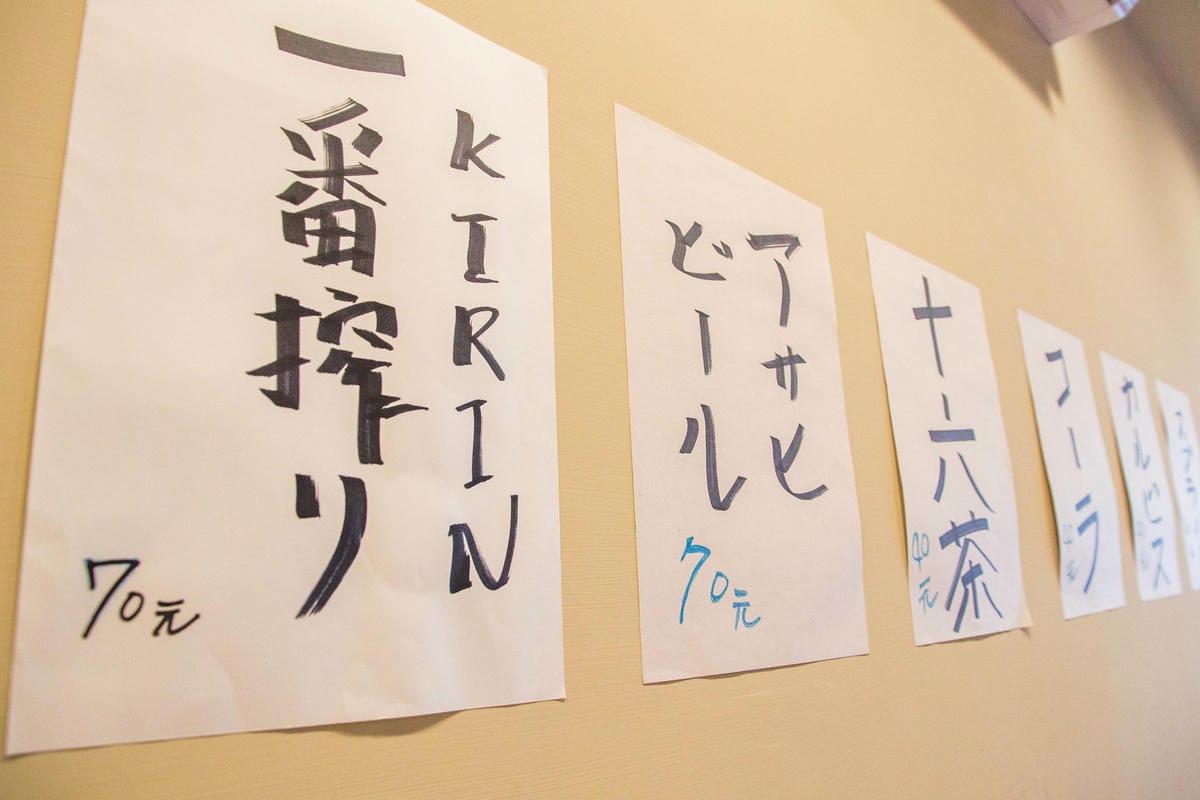 KIRIN
一番搾り
70元
アサヒ
ビール
70元
十六茶
40元
コーラ
カルピス